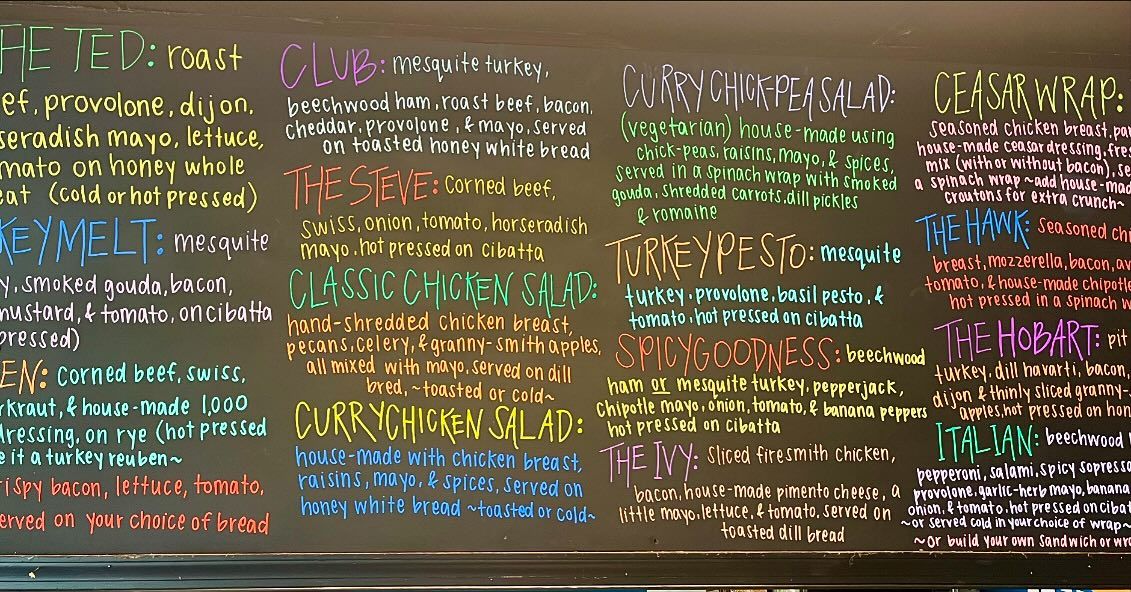 HE TED: roast
ef, provolone, dijon,
seradish mayo, lettuce,
mato on honey whole
eat (cold or hot pressed)
KEY MELT: mesquite
y, smoked gouda, bacon,
mustard, & tomato, on cibatta
pressed)
EN: Corned beef, swiss,
rkraut, & house-made 1,000
dressing, on rye (hot pressed
e it a turkey reuben~
rispy bacon, lettuce, tomato,
erved on your choice of bread
CLUB: mesquite turkey,
beechwood ham, roast beef, bacon,
cheddar, provolone, & mayo, served
on toasted honey white bread
THE STEVE: Corned beef,
swiss, onion, tomato, horseradish
mayo, hot pressed on cibatta
CLASSIC CHICKEN SALAD:
hand-shredded chicken breast,
pecans, celery, & granny-smith apples,
all mixed with mayo, served on dill
bred, ~toasted or cold~
CURRY CHICKEN SALAD:
house-made with chicken breast,
raisins, mayo, & spices, served on
honey white bread ~toasted or cold~
CURRY CHICK-PEA SALAD:
(vegetarian) house-made using
chick-peas, raisins, mayo, & spices,
served in a spinach wrap with smoked
gouda, shredded carrots, dill pickles
& romaine
TURKEY PESTO: mesquite
turkey, provolone, basil pesto, &
tomato, hot pressed on cibatta
SPICY GOODNESS: beechwood
ham or mesquite turkey, pepperjack,
Chipotle mayo, onion, tomato, & banana peppers
hot pressed on cibatta
THE IVY: Sliced firesmith chicken,
bacon, house-made pimento cheese, a
little mayo, lettuce, & tomato, served on
toasted dill bread
CEASAR WRAP:
seasoned chicken breast, par
house-made ceasar dressing, fres
mix (with or without bacon), se
a spinach wrap ~add house-mad
croutons for extra crunch~
THE HAWK: Seasoned chi
breast, mozzerella, bacon, av
tomato, & house-made chipotle
hot pressed in a spinach w
THE HOBART: pit
turkey, dill havarti, bacon,
dijon & thinly sliced granny-
apples, hot pressed on hon
ITALIAN: beechwood
pepperoni, salami, spicy sopressa
provolone, garlic-herb mayo, banana
onion, & tomato, hot pressed on cibat
~or served cold in your choice of wrap~
~or build your own sandwich or wra